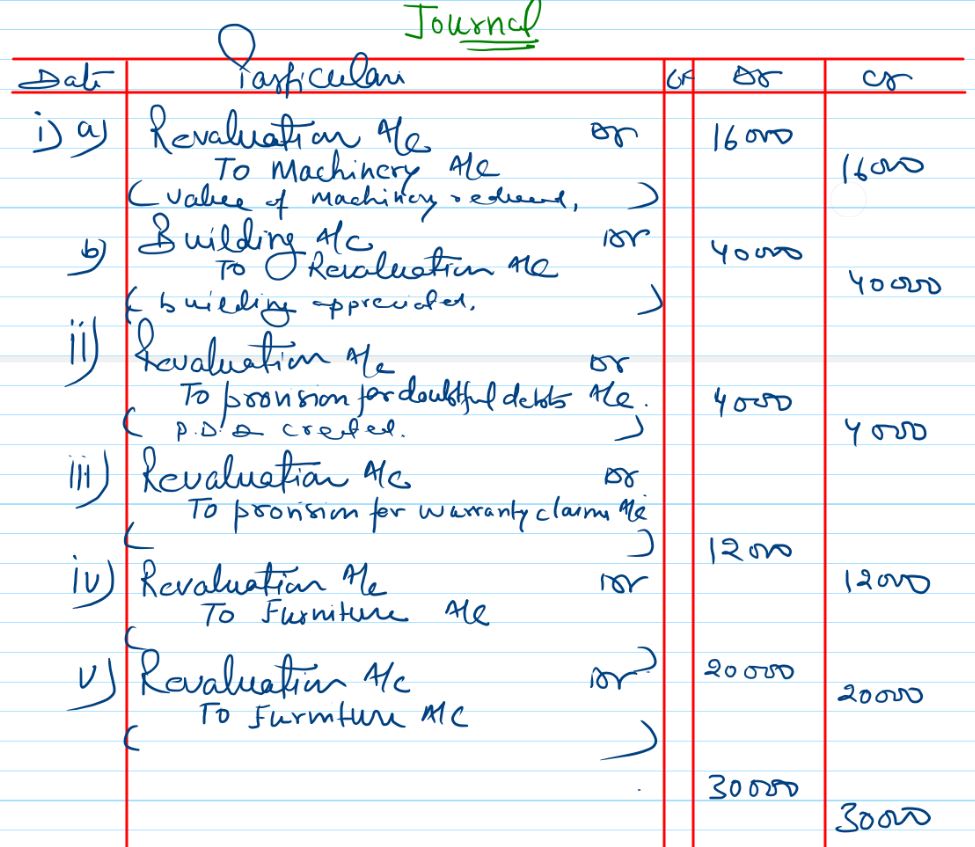 Journal
Date Particulars LF Dr Cr
i) a) Revaluation A/c Dr 16000
To Machinery A/c 16000
( value of machinery reduced, )
b) Building A/c Dr 40000
To Revaluation A/c 40000
( building appreciated. )
ii) Revaluation A/c Dr
To provision for doubtful debts A/c. 4000
( P.D.D created. ) 4000
iii) Revaluation A/c Dr
To provision for warranty claims A/c
( ) 12000
iv) Revaluation A/c Dr 12000
To Furniture A/c
( )
v) Revaluation A/c Dr 20000
To Furniture A/c 20000
( )
30000
30000